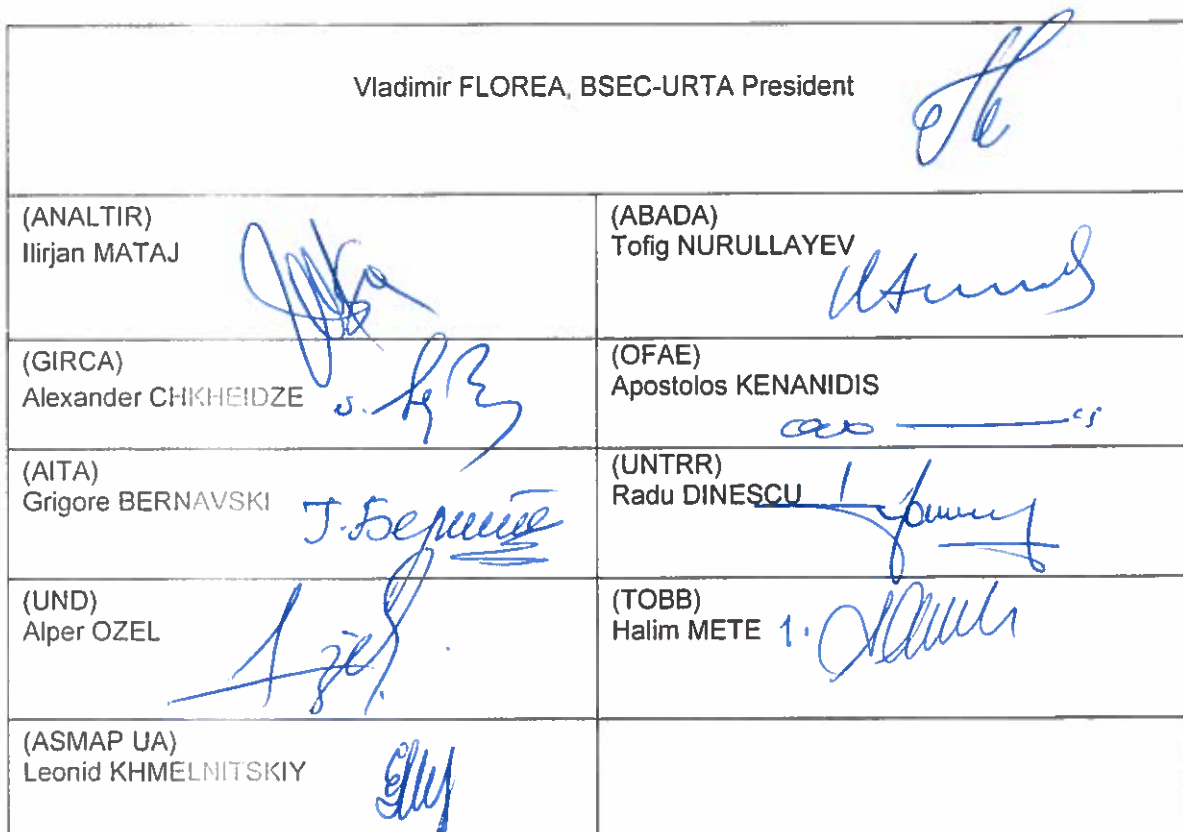 Vladimir FLOREA, BSEC-URTA President
(ANALTIR)
Ilirjan MATAJ
(ABADA)
Tofig NURULLAYEV
(GIRCA)
Alexander CHKHEIDZE
(OFAE)
Apostolos KENANIDIS
(AITA)
Grigore BERNAVSKI
(UNTRR)
Radu DINESCU
(UND)
Alper OZEL
(TOBB)
Halim METE
(ASMAP UA)
Leonid KHMELNITSKIY